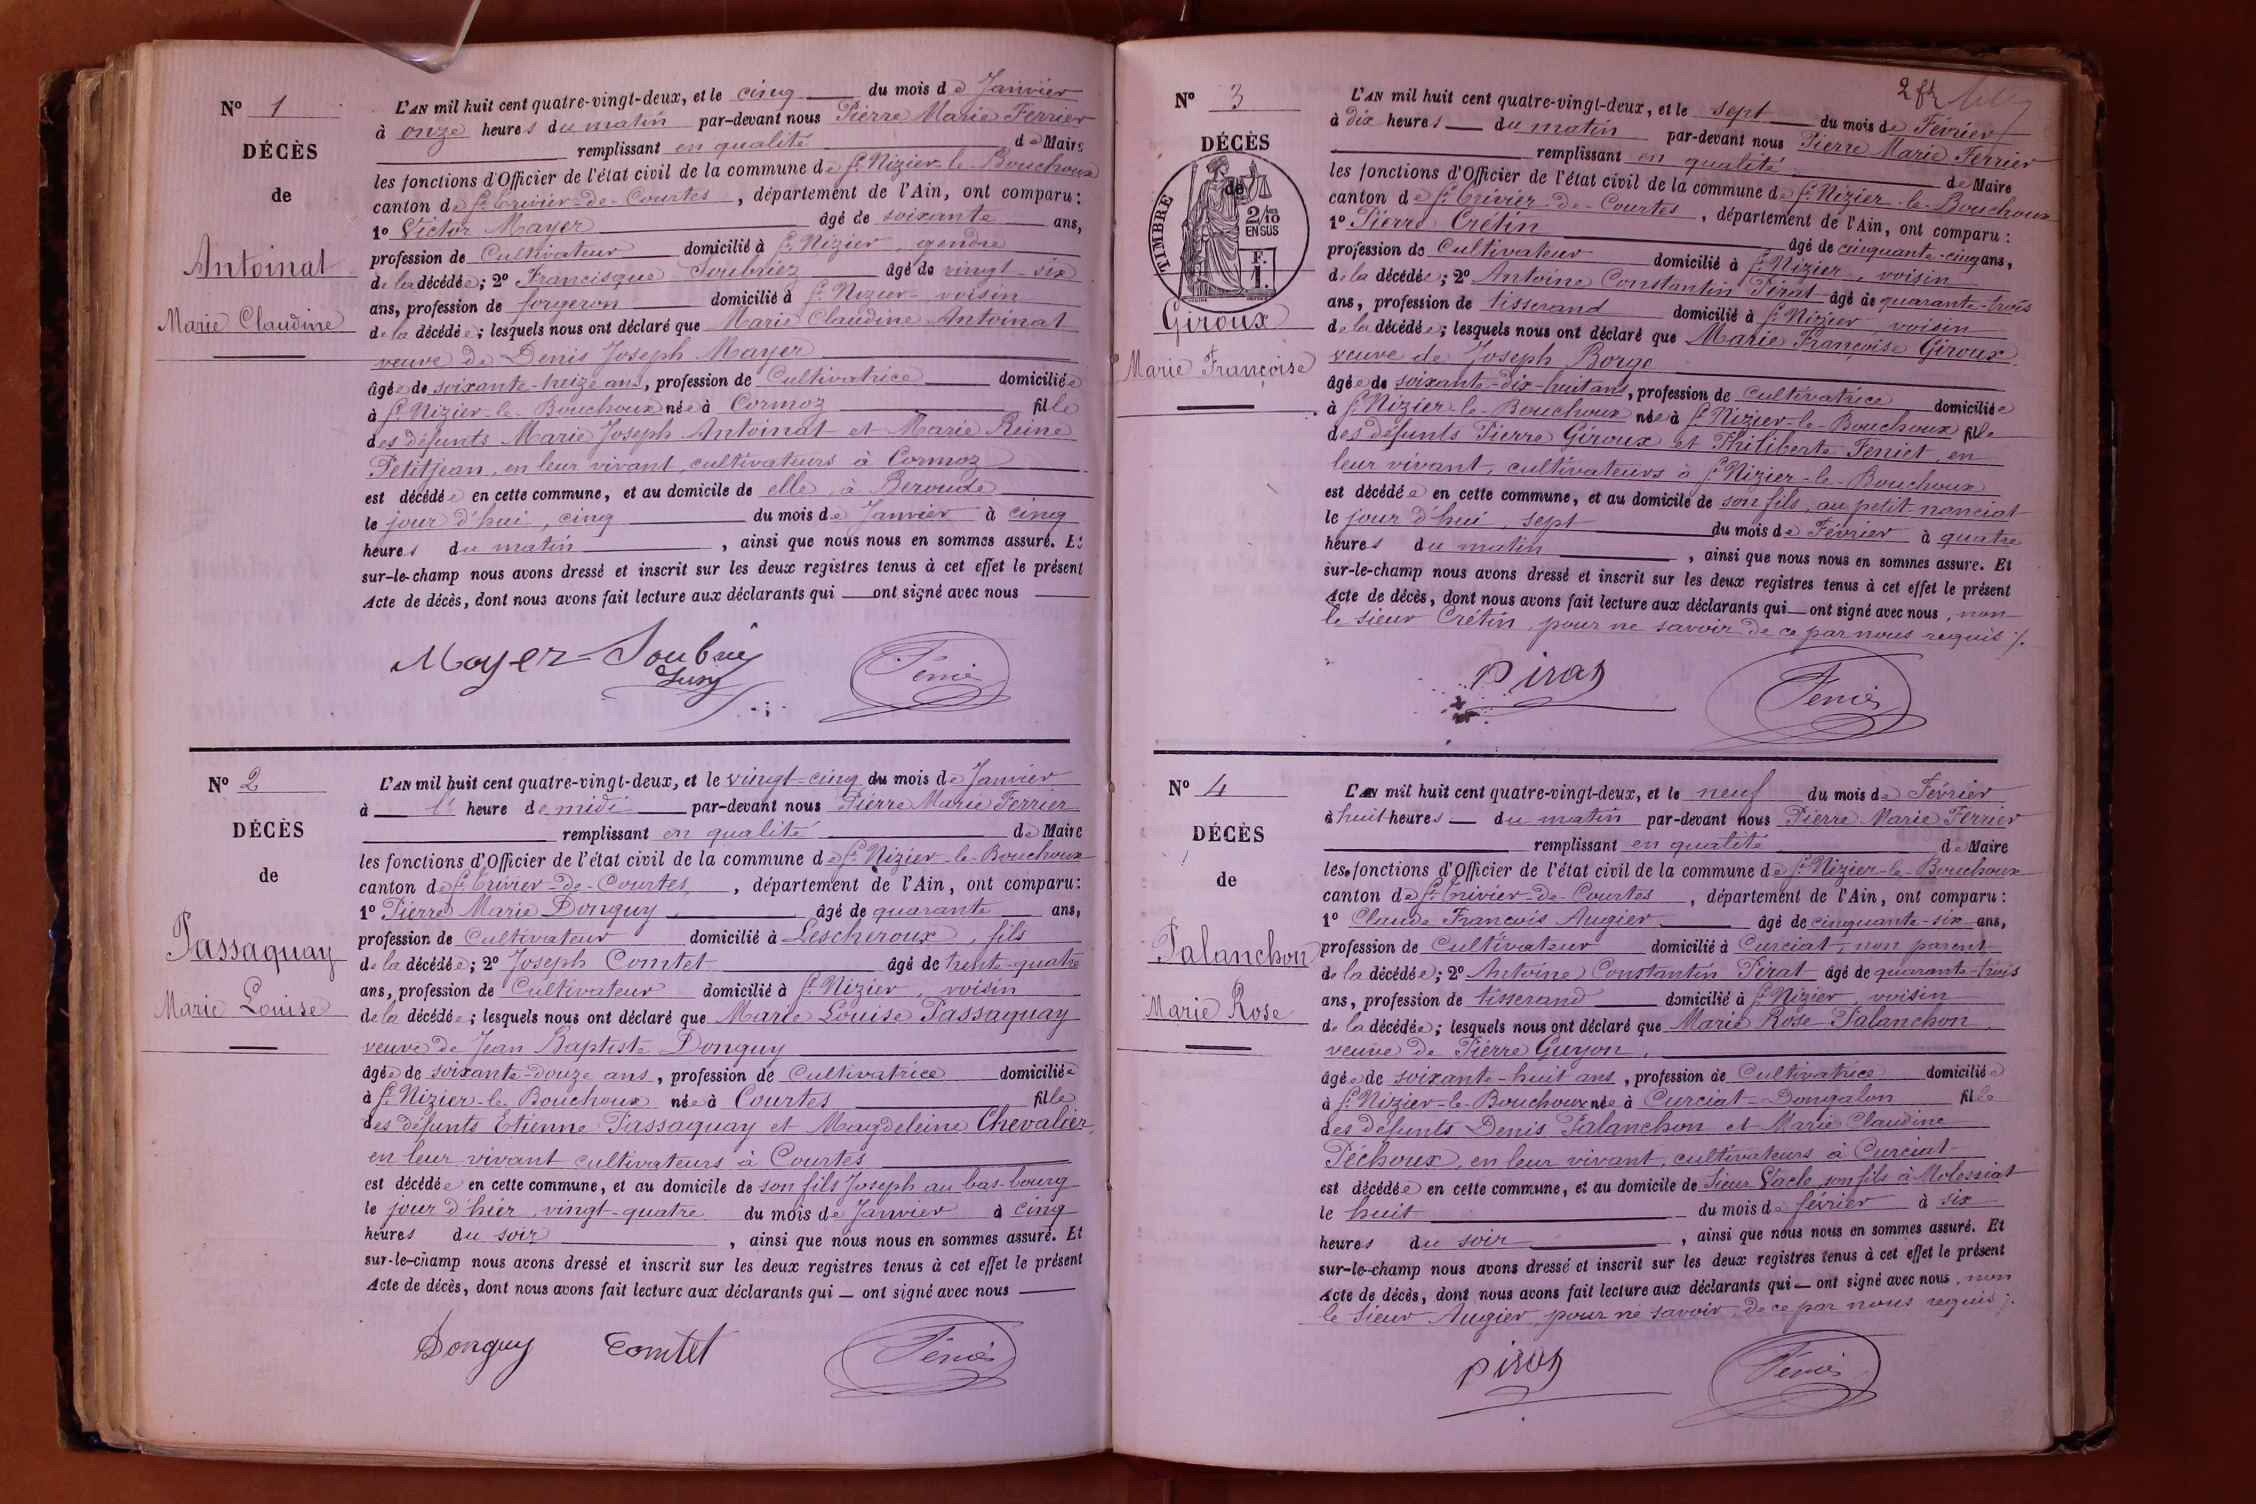 Nº 1
DÉCÈS
de
Antoinat
Marie Claudine
L'AN mil huit cent quatre-vingt-deux, et le cinq du mois de Janvier
à onze heures du matin par-devant nous Pierre Marie Ferrier
remplissant en qualité de Maire
les fonctions d'Officier de l'état civil de la commune de St Nizier-le-Bouchoux
canton de St Trivier-de-Courtes, département de l'Ain, ont comparu:
1º Victor Mayer âgé de soixante ans,
profession de Cultivateur domicilié à St Nizier, gendre
de la décédée; 2º Francisque Soubriez âgé de vingt-six
ans, profession de forgeron domicilié à St Nizier voisin
de la décédée; lesquels nous ont déclaré que Marie Claudine Antoinat
veuve de Denis Joseph Mayer
âgée de soixante-treize ans, profession de Cultivatrice domiciliée
à St Nizier-le-Bouchoux née à Cormoz fille
des défunts Marie Joseph Antoinat et Marie Reine
Petitjean, en leur vivant, cultivateurs à Cormoz
est décédée en cette commune, et au domicile de elle, à Beroude
le jour d'hui, cinq du mois de Janvier à cinq
heures du matin, ainsi que nous nous en sommes assuré. Et
sur-le-champ nous avons dressé et inscrit sur les deux registres tenus à cet effet le présent
Acte de décès, dont nous avons fait lecture aux déclarants qui — ont signé avec nous
Mayer Soubrié
Nº 2
DÉCÈS
de
Passaquay
Marie Louise
L'AN mil huit cent quatre-vingt-deux, et le vingt-cinq du mois de Janvier
à heure de midi par-devant nous Pierre Marie Ferrier
remplissant en qualité de Maire
les fonctions d'Officier de l'état civil de la commune de St Nizier-le-Bouchoux
canton de St Trivier-de-Courtes, département de l'Ain, ont comparu:
1º Pierre Marie Donguy, âgé de quarante ans,
profession de Cultivateur domicilié à Lescheroux, fils
de la décédée; 2º Joseph Comtet âgé de trente-quatre
ans, profession de Cultivateur domicilié à St Nizier, voisin
de la décédée; lesquels nous ont déclaré que Marie Louise Passaquay
veuve de Jean Baptiste Donguy
âgée de soixante-douze ans, profession de Cultivatrice domiciliée
à St Nizier-le-Bouchoux née à Courtes fille
des défunts Etienne Passaquay et Magdeleine Chevalier,
en leur vivant cultivateurs à Courtes
est décédée en cette commune, et au domicile de son fils Joseph au bas-bourg
le jour d'hier, vingt-quatre du mois de Janvier à cinq
heures du soir, ainsi que nous nous en sommes assuré. Et
sur-le-champ nous avons dressé et inscrit sur les deux registres tenus à cet effet le présent
Acte de décès, dont nous avons fait lecture aux déclarants qui — ont signé avec nous
Donguy Comtet
Nº 3
DÉCÈS
de
TIMBRE
2/10
EN SUS
F.
1.
Giroux
Marie Françoise
L'AN mil huit cent quatre-vingt-deux, et le sept du mois de Février
à dix heures du matin par-devant nous Pierre Marie Ferrier
remplissant en qualité de Maire
les fonctions d'Officier de l'état civil de la commune de St Nizier-le-Bouchoux
canton de St Trivier-de-Courtes, département de l'Ain, ont comparu:
1º Pierre Crétin âgé de cinquante-cinq ans,
profession de Cultivateur domicilié à St Nizier, voisin
de la décédée; 2º Antoine Constantin Pirat âgé de quarante-trois
ans, profession de tisserand domicilié à St Nizier voisin
de la décédée; lesquels nous ont déclaré que Marie Françoise Giroux
veuve de Joseph Borge
âgée de soixante-dix-huit ans, profession de cultivatrice domiciliée
à St Nizier-le-Bouchoux née à St Nizier-le-Bouchoux fille
des défunts Pierre Giroux et Philiberte Feniet, en
leur vivant, cultivateurs à St Nizier-le-Bouchoux
est décédée en cette commune, et au domicile de son fils, au petit-nonciat
le jour d'hui, sept du mois de Février à quatre
heures du matin, ainsi que nous nous en sommes assuré. Et
sur-le-champ nous avons dressé et inscrit sur les deux registres tenus à cet effet le présent
Acte de décès, dont nous avons fait lecture aux déclarants qui — ont signé avec nous, non
le sieur Crétin, pour ne savoir de ce par nous requis ./.
Nº 4
DÉCÈS
de
Palanchon
Marie Rose
L'AN mil huit cent quatre-vingt-deux, et le neuf du mois de Février
à huit heures du matin par-devant nous Pierre Marie Ferrier
remplissant en qualité de Maire
les fonctions d'Officier de l'état civil de la commune de St Nizier-le-Bouchoux
canton de St Trivier-de-Courtes, département de l'Ain, ont comparu:
1º Claude François Augier, âgé de cinquante-six ans,
profession de Cultivateur domicilié à Curciat, non parent
de la décédée; 2º Antoine Constantin Pirat âgé de quarante-trois
ans, profession de tisserand domicilié à St Nizier, voisin
de la décédée; lesquels nous ont déclaré que Marie Rose Palanchon
veuve de Pierre Guyon,
âgée de soixante-huit ans, profession de Cultivatrice domiciliée
à St Nizier-le-Bouchoux née à Curciat-Dongalon fille
des défunts Denis Palanchon et Marie Claudine
Péchoux, en leur vivant, cultivateurs à Curciat
est décédée en cette commune, et au domicile de Sieur son fils à Molessiat
le huit du mois de février à six
heures du soir, ainsi que nous nous en sommes assuré. Et
sur-le-champ nous avons dressé et inscrit sur les deux registres tenus à cet effet le présent
Acte de décès, dont nous avons fait lecture aux déclarants qui — ont signé avec nous, non
le Sieur Augier, pour ne savoir, de ce par nous requis ./.